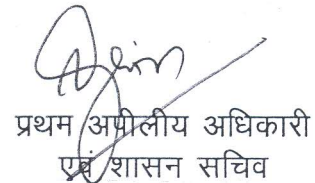 प्रथम अपीलीय अधिकारी
एवं शासन सचिव